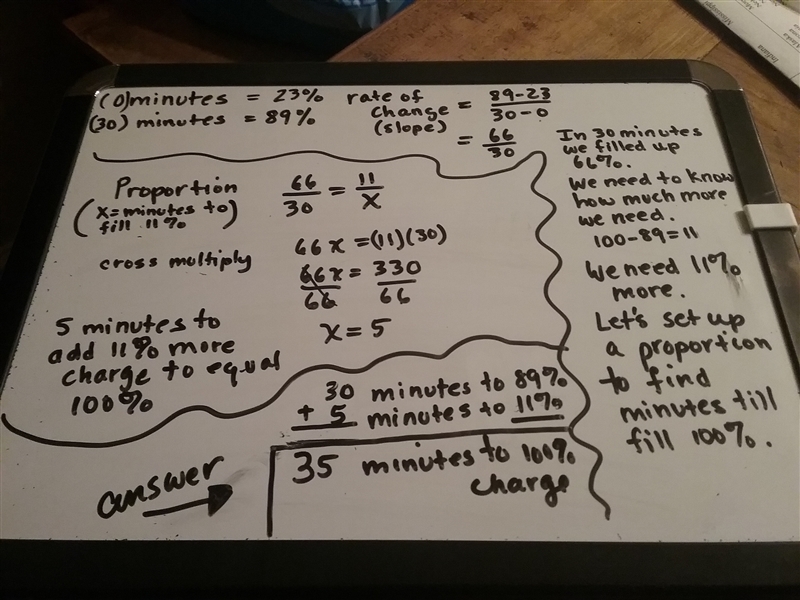 (0) minutes = 23%
(30) minutes = 89%
rate of change (slope) = 89-23 / 30-0
= 66 / 30
In 30 minutes
we filled up
66%.
We need to know
how much more
we need.
100-89=11
We need 11%
more.
Let's set up
a proportion
to find
minutes till
fill 100%.
Proportion
(x=minutes to
fill 11%)
66/30 = 11/x
cross multiply
66x = (11)(30)
66x/66 = 330/66
x = 5
5 minutes to
add 11% more
charge to equal
100%
30 minutes to 89%
+ 5 minutes to 11%
answer
35 minutes to 100%
charge
Indiana
Mississippi